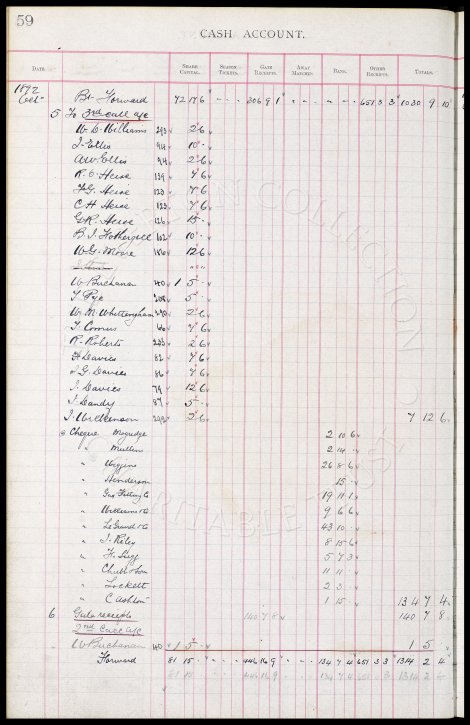 59
CASH ACCOUNT.
DATE. SHARE CAPITAL. SEASON TICKETS. GATE RECEIPTS. AWAY MATCHES. BANK. OTHER RECEIPTS. TOTALS.
1892
Oct Bt Forward 72 17 6 306 9 1 651 3 3 1030 9 10
5 To 3rd call a/c
W D Williams 293 2 6
J. Ellis 94 10
A W Ellis 94 2 6
R. C. Heise 139 7 6
F G. Heise 123 7 6
C H Heise 123 7 6
G. R. Heise 126 15
B. J. Fothergill 102 10
W G. Moore 186 12 6
W Buchanan 40 1 5
J. Pye 208 5
W. M. Whittingham 290 2 6
J. Comus 66 7 6
R. Roberts 223 2 6
H Davies 82 7 6
J. G. Davies 86 7 6
J. Davies 79 12 6
J. Dandy 87 5
J. Wilkinson 292 2 6 7 12 6
Cheque Mogridge 2 10 6
" Mullins 2 14
" Wiggins 26 8 6
" Henderson 15
" Gas Fitting Co 19 11 1
" Williams & Co 9 6 6
" Le Grand & Co 43 10
" J. Riley 8 15 6
" H. Lugg 5 7 3
" Chubb & Son 11 11
" Lockett 2 3
" C Ashton 1 15 134 7 4
6 Gate receipts 140 7 8 140 7 8
2nd Call a/c
W Buchanan 40 1 5 1 5
Forward 81 15 446 16 9 134 7 4 651 3 3 1314 2 4
81 15 446 16 9 134 7 4 651 3 3 1314 2 4